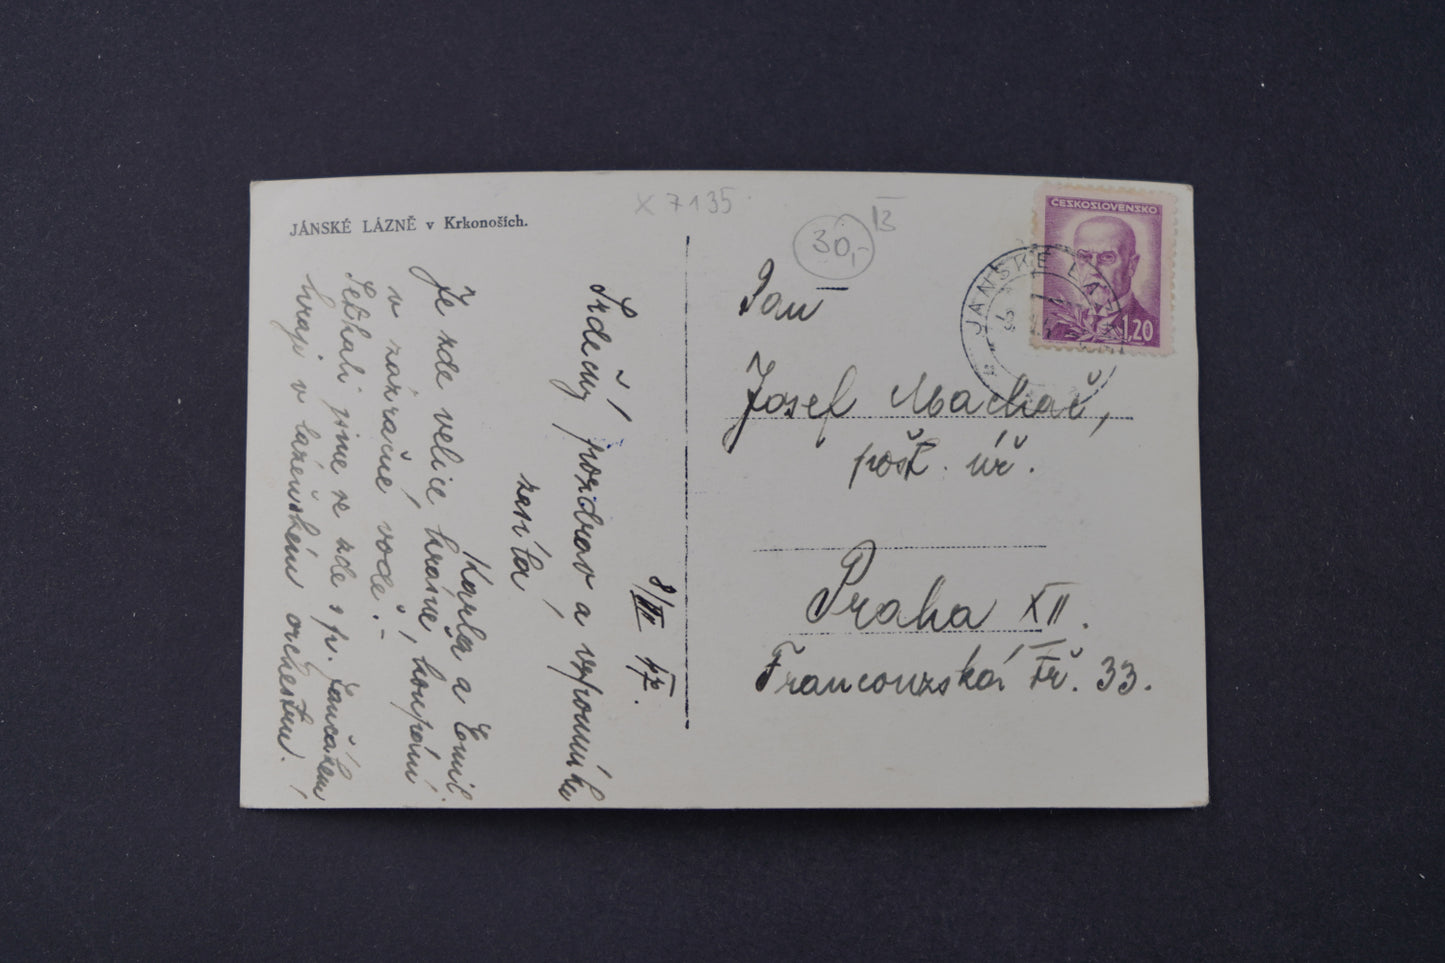 JÁNSKÉ LÁZNĚ v Krkonoších.
X 7135
30,-
ČESKOSLOVENSKO
1,20
JÁNSKÉ LÁZ
8/VII 47.
Srdečný pozdrav a vzpomínku
zasílá
Karla a Emil.
Je zde velice krásně, koupání
v zázračné vodě.-
Setkali jsme se zde s p. Jančářem
hraji v lázeňském orchestru.!
Pan
Josef Machač,
pošt. úř.
Praha XII.
Francouzská tř. 33.